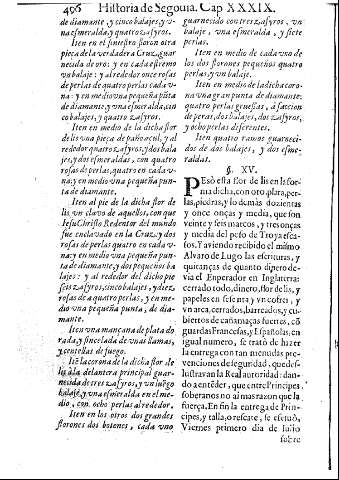 496 Historia de Segouia. Cap XXXIX.
de diamante, y cinco balajes, y v-
na esmeralda, y quatro zafyros.
Iten en el siniestro floron otra
pieça de la verdadera Cruz, guar-
necida de oro: y en cada estremo
vn balaje: y al rededor once rosas
de perlas de quatro perlas cada v-
na: y en medio vna pequeña pũta
de diamante, y vna esmeralda, cin
co balajes, y quatro zafyros.
Iten en medio de la dicha flor
de lis vna pieça de pañeacul, y al
rededor quatro zafyros, y dos bala
jes, y dos esmeraldas, con quatro
rosas de perlas, quatro en cada v-
na; y en medio vna pequeña punta
de diamante.
Iten al pie de la dicha flor de
lis vn clavo de aquellos, con que
Iesu Christo Redentor del mundo
fue enclavado en la Cruz: y dos
rosas de perlas quatro en cada v-
na; y en medio vna pequeña pun-
ta de diamante, y dos pequeños ba
lajes: y al rededor del dicho pie
seis zafyros, cinco balajes, y diez
rosas de a quatro perlas, y en me-
dio vna pequeña punta, de dia-
mante.
Iten vna mançana de plata do
rada, y sincelada de vnas llamas,
y centellas de fuego.
Itẽ la corona de la dicha flor de
lis à la delantera principal guar-
necida de tres zafyros, y vn luego
balaje, y vna esmeralda en el me-
dio, con ocho perlas al rededor.
Iten en los otros dos grandes
florones dos botones, cada vno
guarnecido con tres zafyros, vn
balaje, vna esmeralda, y siete
perlas.
Iten en medio de cada vno de
los dos florones quatro pequeñas
perlas, y vn balaje.
Iten en medio de la dicha coro-
na vna gran punta de diamante;
quatro perlas gruessas, à faccion
de peras, dos balajes, dos zafyros,
y ocho perlas diferentes.
Iten quatro ramos guarneci-
dos de dos balajes, y dos esme-
raldas.
§. XV.
Pesò esta flor de lis en la for-
ma dicha, con oro, plata, per-
las, piedras, y lo demàs dozientas
y once onças y media, que son
veinte y seis marcos, y tres onças
y media del peso de Troyas esco-
tos. Y aviendo recibido el mismo
Alvaro de Lugo las escrituras, y
quitanças de quanto dinero de-
via el Emperador en Inglaterra:
cerrado todo, dinero, flor de lis, y
papeles en sesenta y vn cofres, y
vn arca, cerrados, barreados, y cu-
biertos de cañamaças fuertes, cõ
guardas Francesas, y Españolas, en
igual numero, se tratò de hazer
la entrega con tan menudas pre-
venciones de seguridad, que des-
lustravan la Real autoridad: dan-
do a entẽder, que entre Principes
soberanos no ai mas razon que la
fuerça. En fin la entrega de Prin-
cipes, y talla, o rescate, se efetuò,
Viernes primero dia de Iulio
sobre